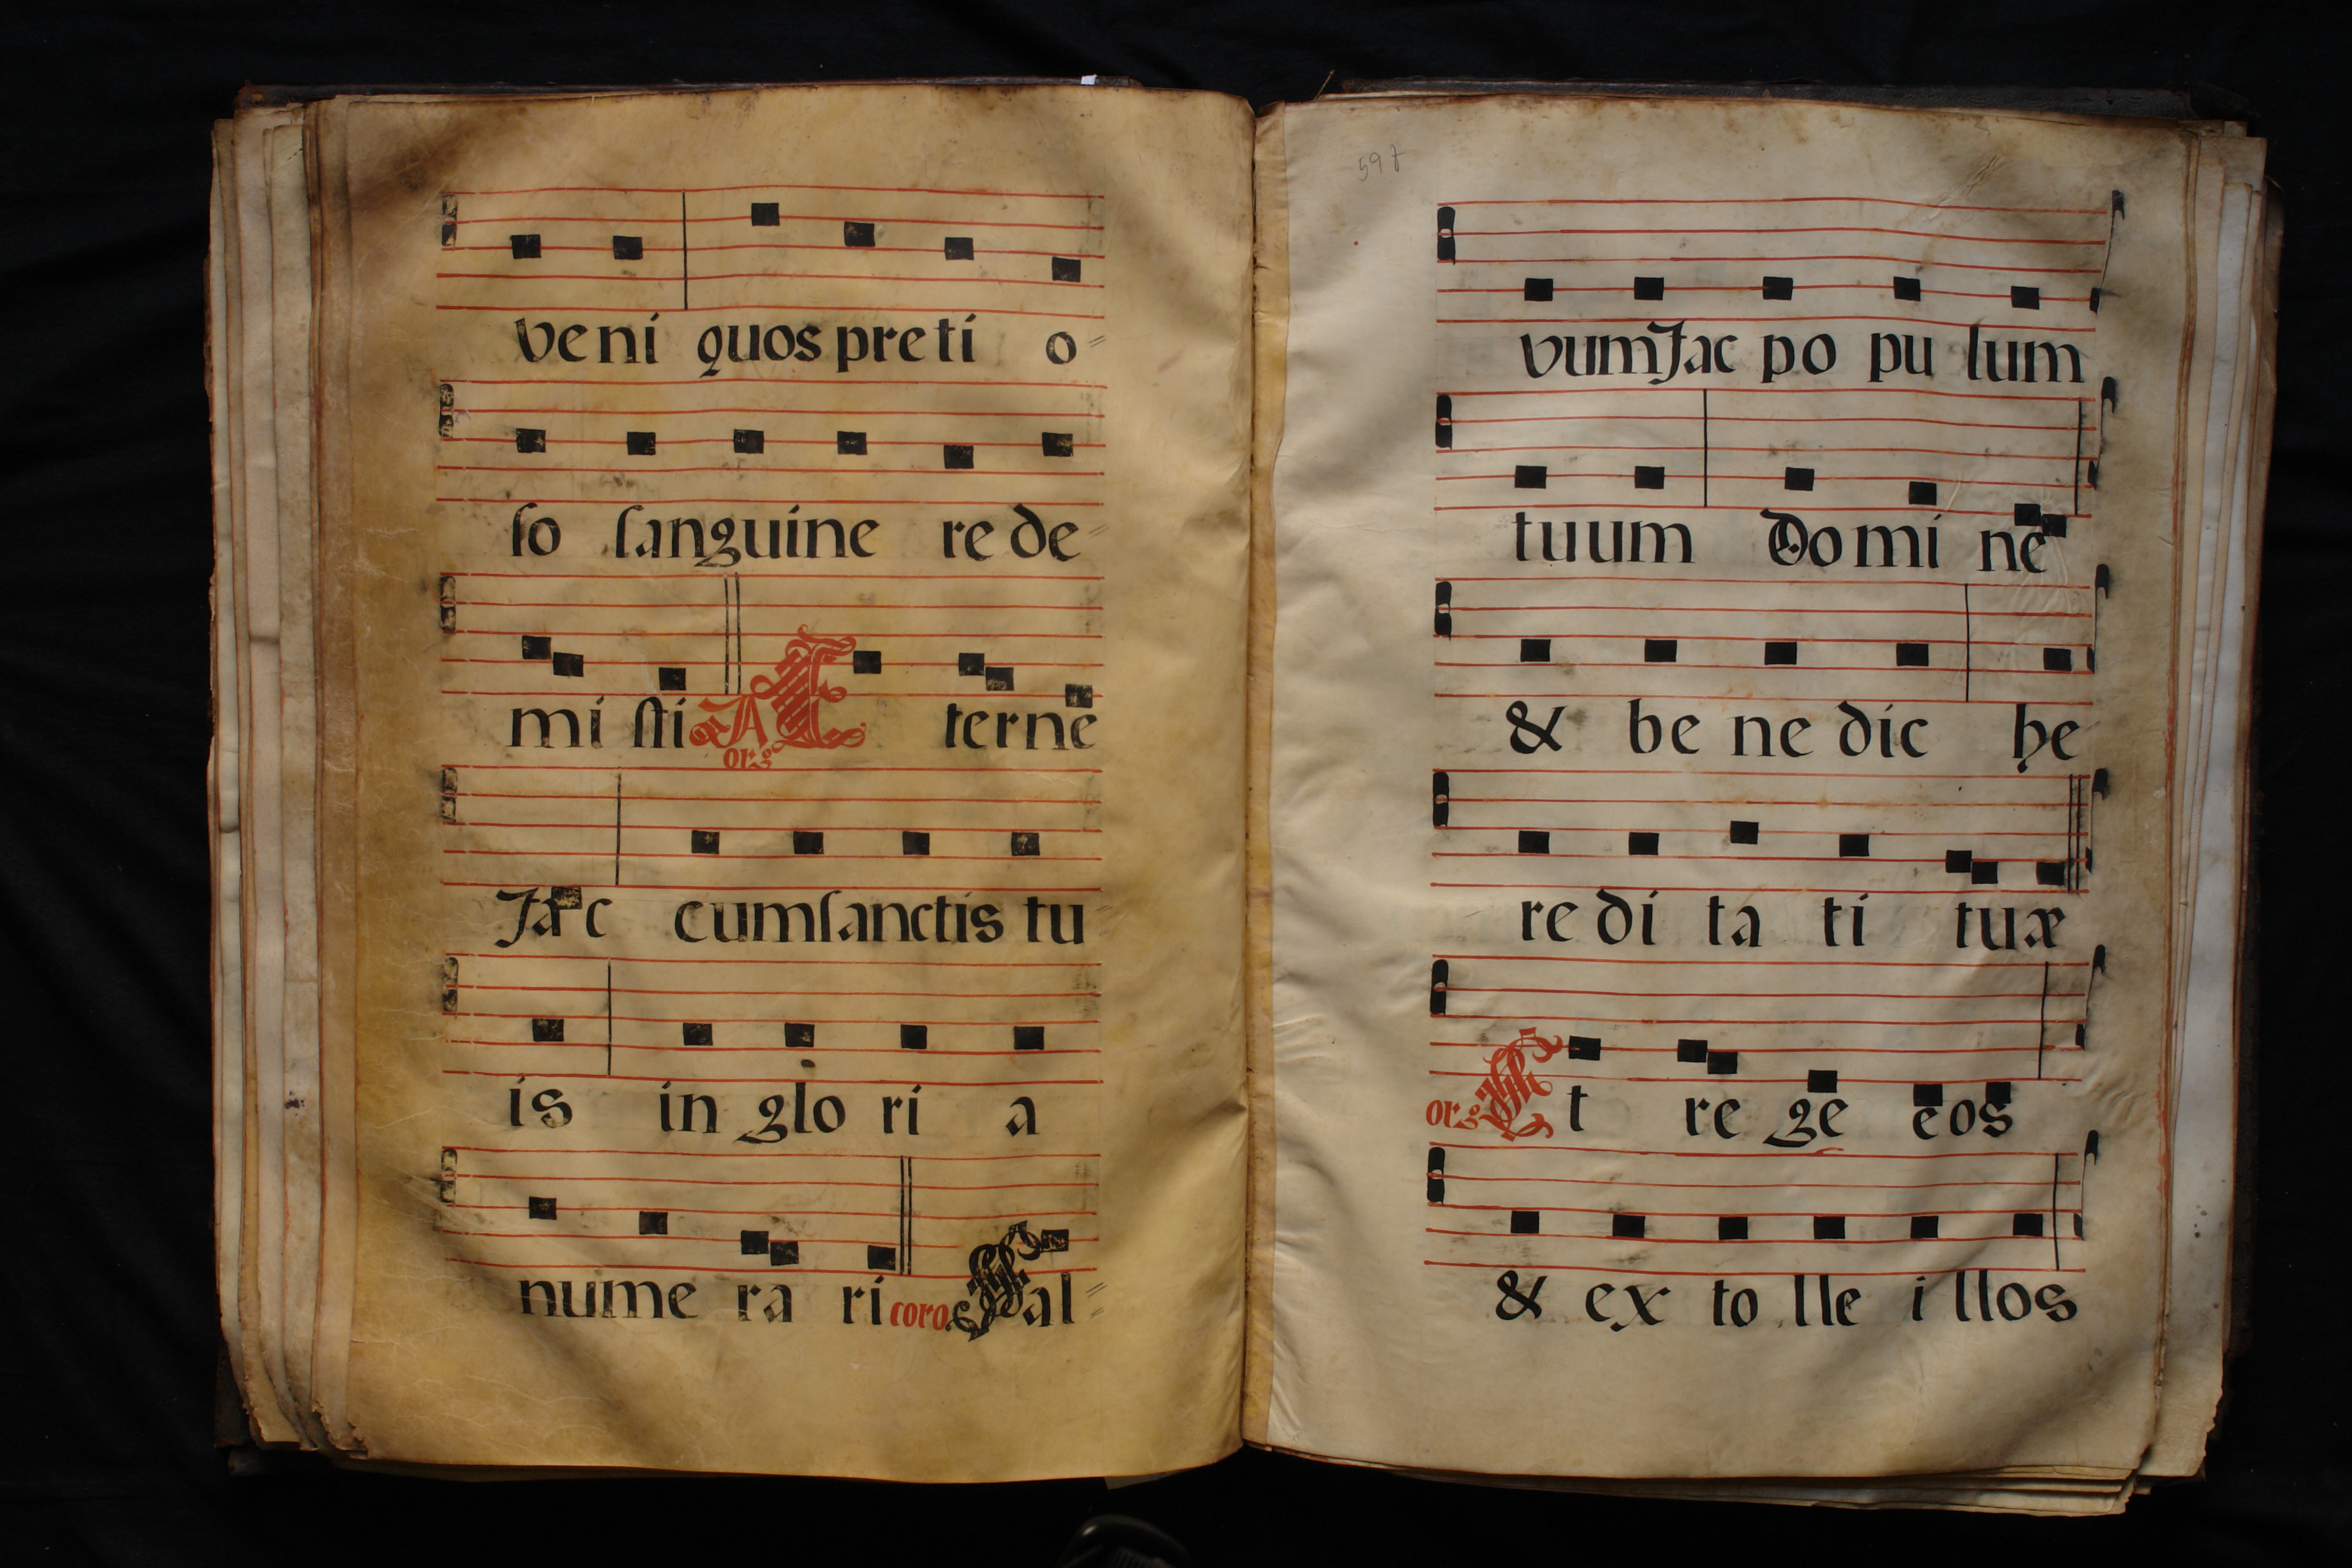 veni quos preti o
so sanguine re de
mi sti org Æ terne
fac cum sanctis tu
is in glo ri a
nume ra ri coro. Sal
597
vum fac po pu lum
tuum Do mi ne
& be ne dic he
re di ta ti tuæ
org Et re ge eos
& ex to lle i llos